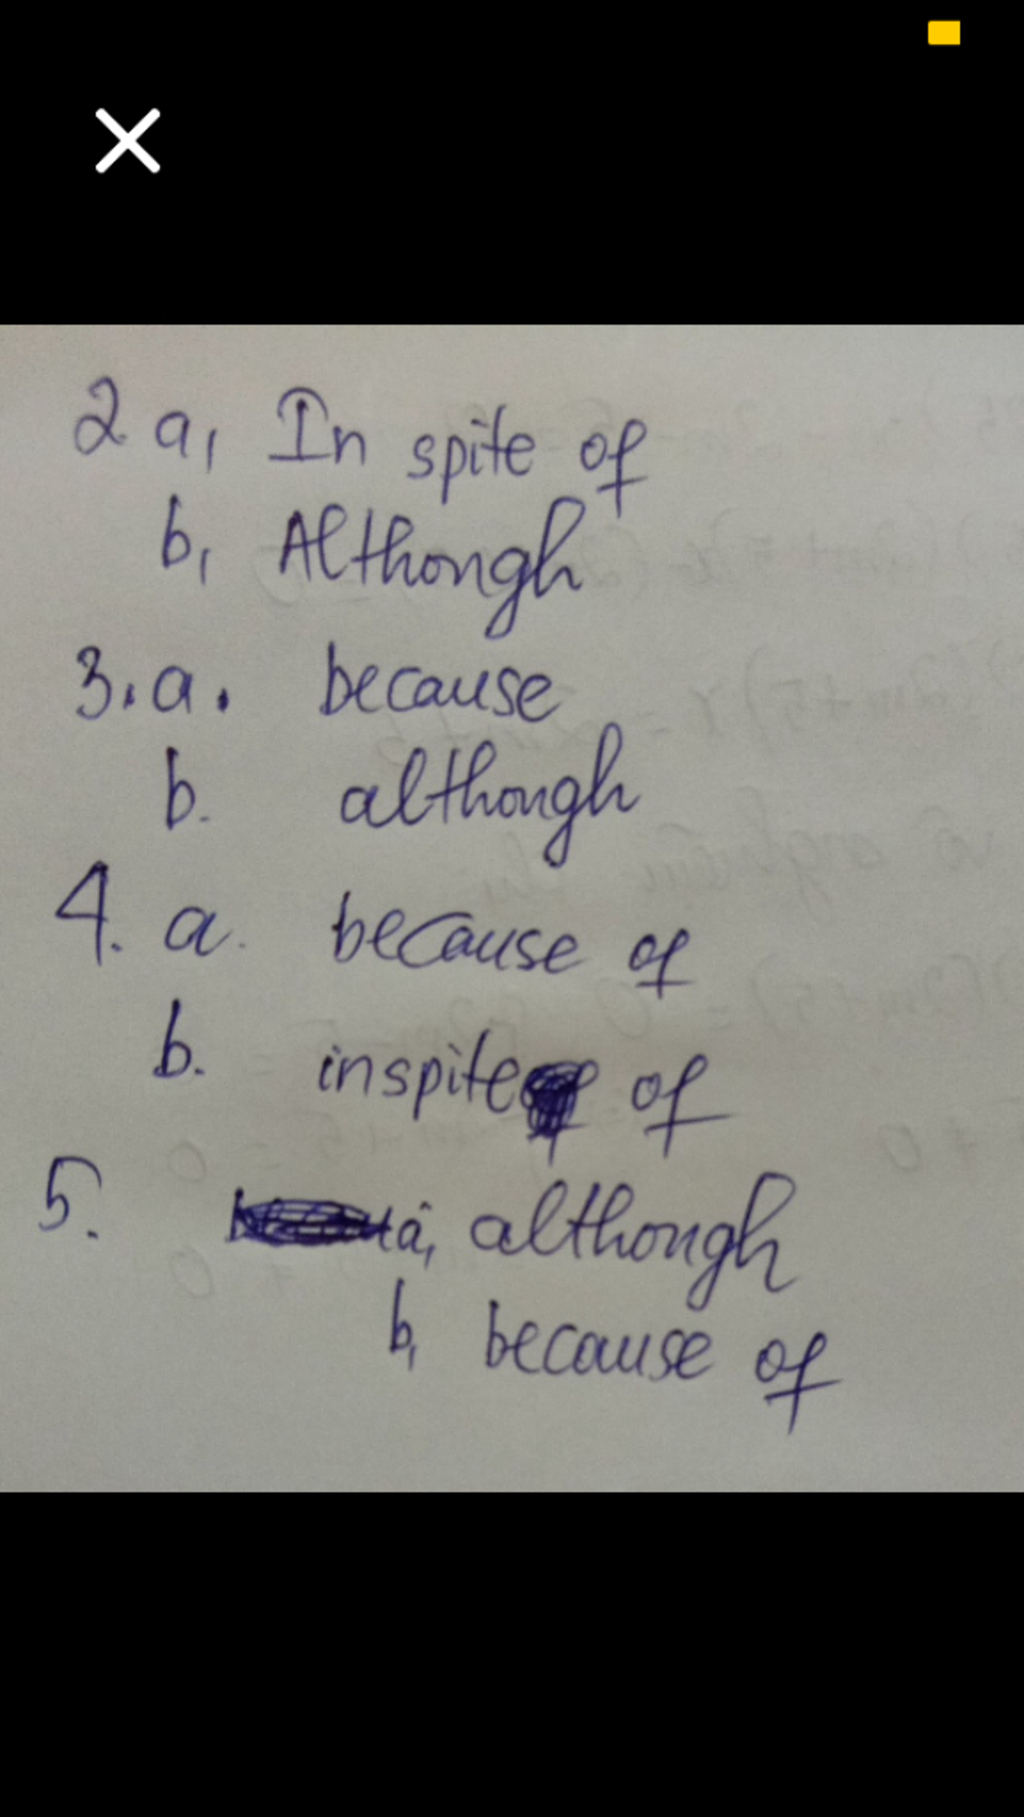 2 a, In spite of
b, Although
3. a. because
b. although
4. a. because of
b. inspite of
5. a, although
b, because of